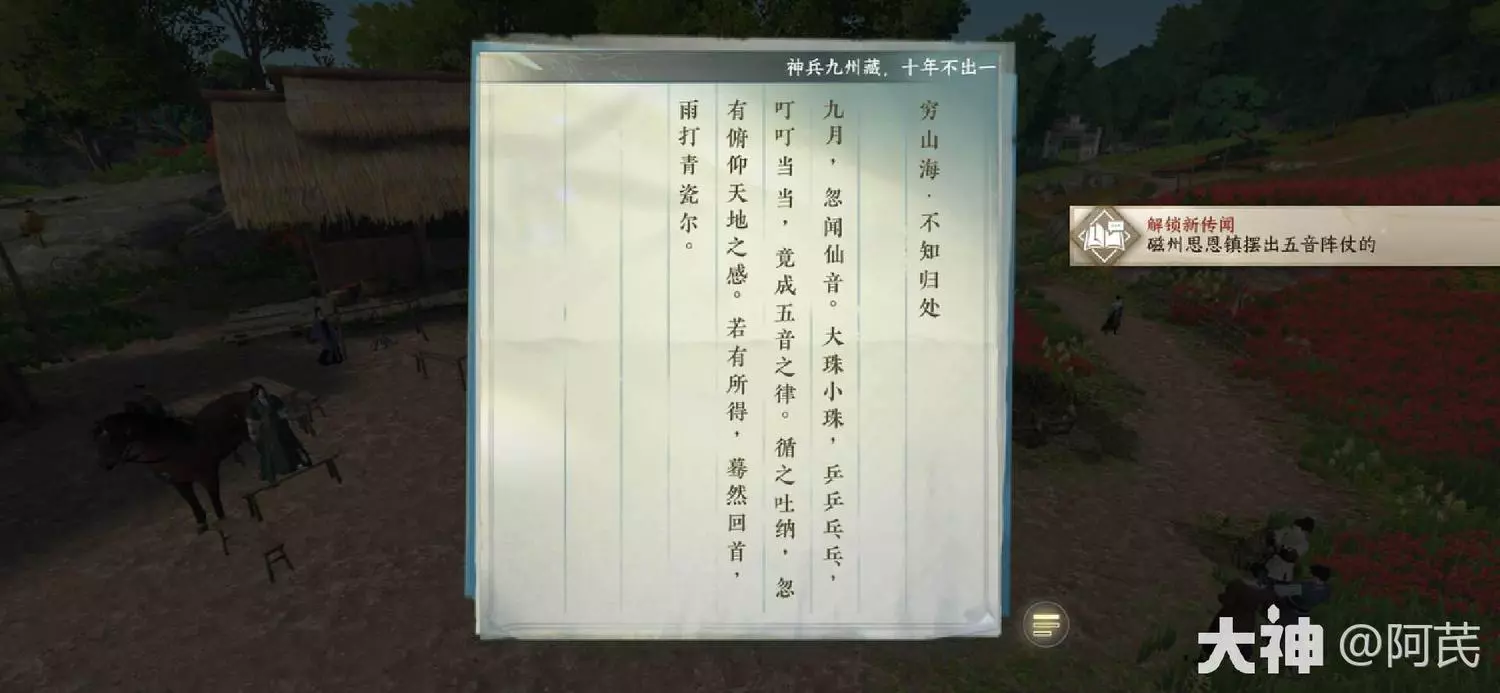 神兵九州藏，十年不出一
穷山海·不知归处
九月，忽闻仙音。大珠小珠，乒乒乓乓，
叮叮当当，竟成五音之律。循之吐纳，忽
有俯仰天地之感。若有所得，蓦然回首，
雨打青瓷尔。
解锁新传闻
磁州思恩镇摆出五音阵仗的
大神 @阿芪